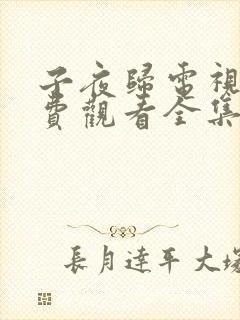 子夜歸電視
費觀看全集
長月達平 大塚